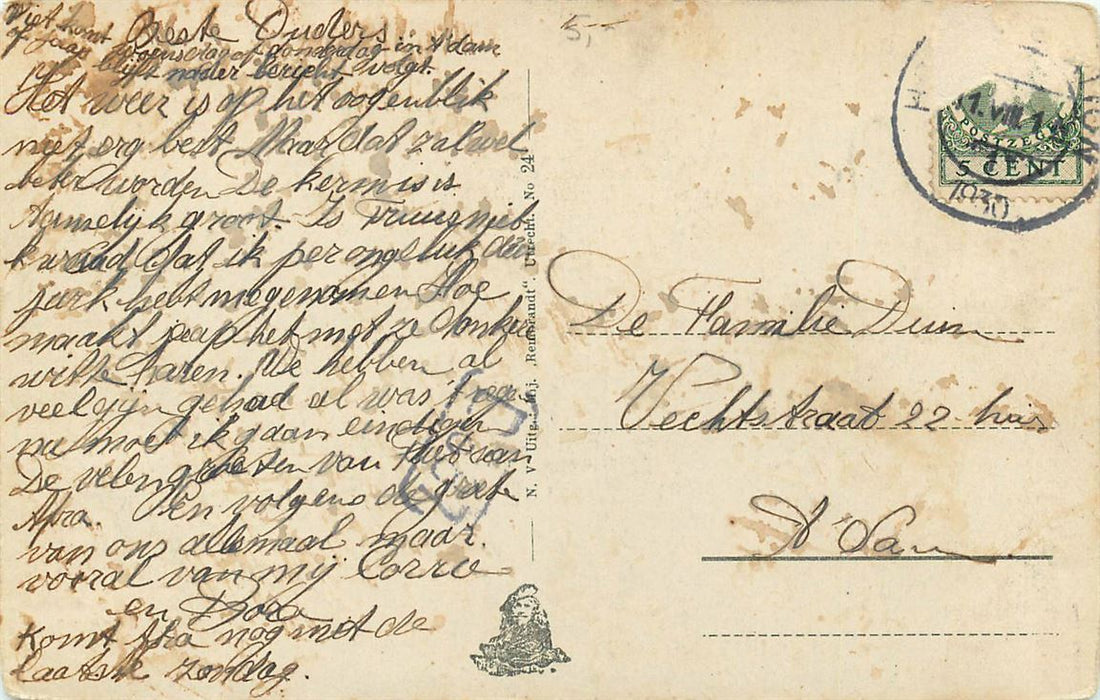 Piet komt
of Jaap woensdag of donderdag in A'dam
blijft nader bericht volgt.
Beste Ouders
Het weer is op het oogenblik
niet erg best Maar dat zal wel
beter worden De kermis is
namelijk groot. Is Truus niet
kwaad dat ik per ongeluk die
jurk hebt megenomen Hoe
maakt jaap het met ze donker
witte haren. We hebben al
veel gijn gehad al was 't regen
nu moet ik gaan eindigen
De velen groeten van Piet van
Afra. En volgens de groete
van ons allemaal maar.
vooral van mij Corrie
en Dora
Komt Afra nog met de
laatste zondag.
N. V. Uitg. Mij. „Rembrandt". Utrecht. No 24
5,-
POSTZE
5 CENT
17.VIII.1
1930
De Familie Duin
Vechtstraat 22 huis
A'Dam